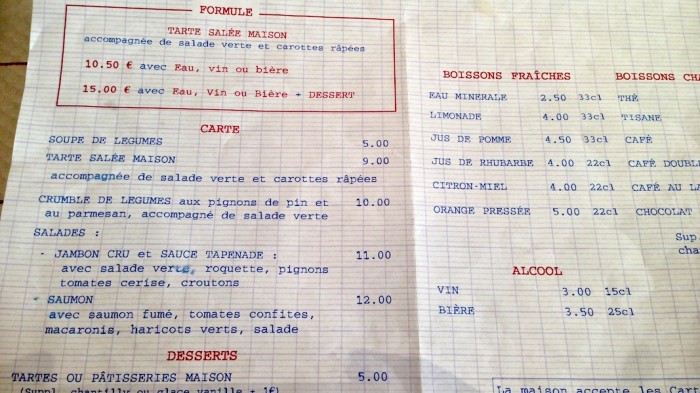 FORMULE
TARTE SALÉE MAISON
accompagnée de salade verte et carottes râpées
10.50 € avec Eau, vin ou bière
15.00 € avec Eau, Vin ou Bière + DESSERT
CARTE
SOUPE DE LEGUMES 5.00
TARTE SALÉE MAISON 9.00
accompagnée de salade verte et carottes râpées
CRUMBLE DE LEGUMES aux pignons de pin et 10.00
au parmesan, accompagné de salade verte
SALADES :
- JAMBON CRU et SAUCE TAPENADE : 11.00
avec salade verte, roquette, pignons
tomates cerise, croutons
- SAUMON 12.00
avec saumon fumé, tomates confites,
macaronis, haricots verts, salade
DESSERTS
TARTES OU PÂTISSERIES MAISON 5.00
(Suppl. chantilly ou glace vanille + 1€)
BOISSONS FRAÎCHES
EAU MINERALE 2.50 33cl
LIMONADE 4.00 33cl
JUS DE POMME 4.50 33cl
JUS DE RHUBARBE 4.00 22cl
CITRON-MIEL 4.00 22cl
ORANGE PRESSÉE 5.00 22cl
ALCOOL
VIN 3.00 15cl
BIÈRE 3.50 25cl
BOISSONS CHA
THÉ
TISANE
CAFÉ
CAFÉ DOUBL
CAFÉ AU LA
CHOCOLAT
Sup
cha
La maison accepte les Cart